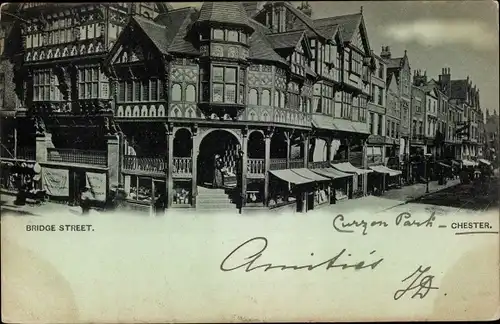 Curzon Park -
BRIDGE STREET. CHESTER.
Amitiés
JD